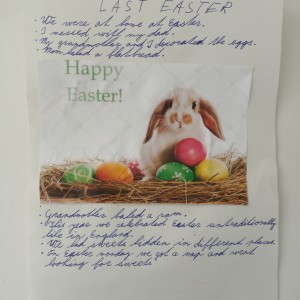 LAST EASTER
• We were at home at Easter.
• I messed with my dad.
• My grandmother and I decorated the eggs.
• Mom baked a flatbread.
Happy
Easter!
• Grandmother baked a ram.
• This year we celebrated Easter untraditionally
like in England.
• We had sweets hidden in different places.
• On Easter monday we got a map and went
looking for sweets